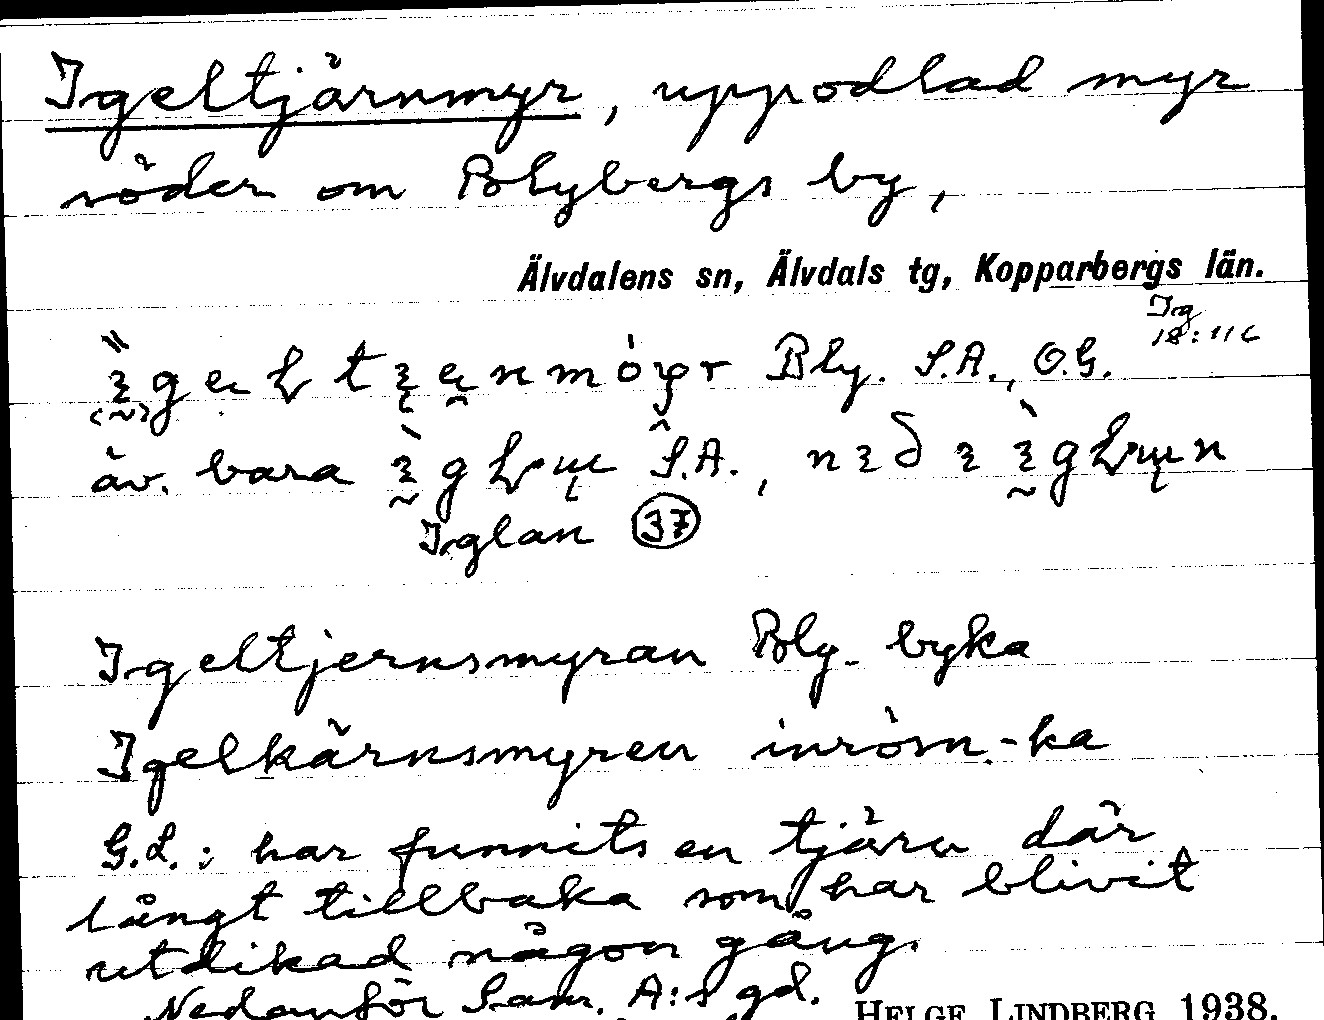 Igeltjärnmyr, uppodlad myr
söder om Blybergs by,
Älvdalens sn, Älvdals tg, Kopparbergs län.
Bly. S.A., O.G.
äv. bara S.A.,
Iglan 37
Igeltjernsmyran Bly. byka
Igelkärnsmyren inröm.-ka
G.L.: har funnits en tjärn där
långt tillbaka som har blivit
utdikad någon gång.
Nedanför Sam. A:s gd.
HELGE LINDBERG 1938.